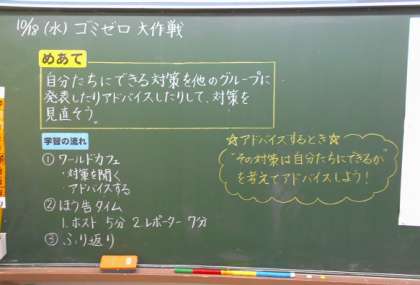 10/18(水) ゴミゼロ 大作戦
めあて
自分たちにできる対策を他のグループに
発表したりアドバイスしたりして、対策を
見直そう。
学習の流れ
① ワールドカフェ
・対策を聞く
・アドバイスする
② ほう告タイム
1.ホスト 5分 2.レポーター 7分
③ ふり返り
☆アドバイスするとき☆
"その対策は自分たちにできるか"
を考えてアドバイスしよう!